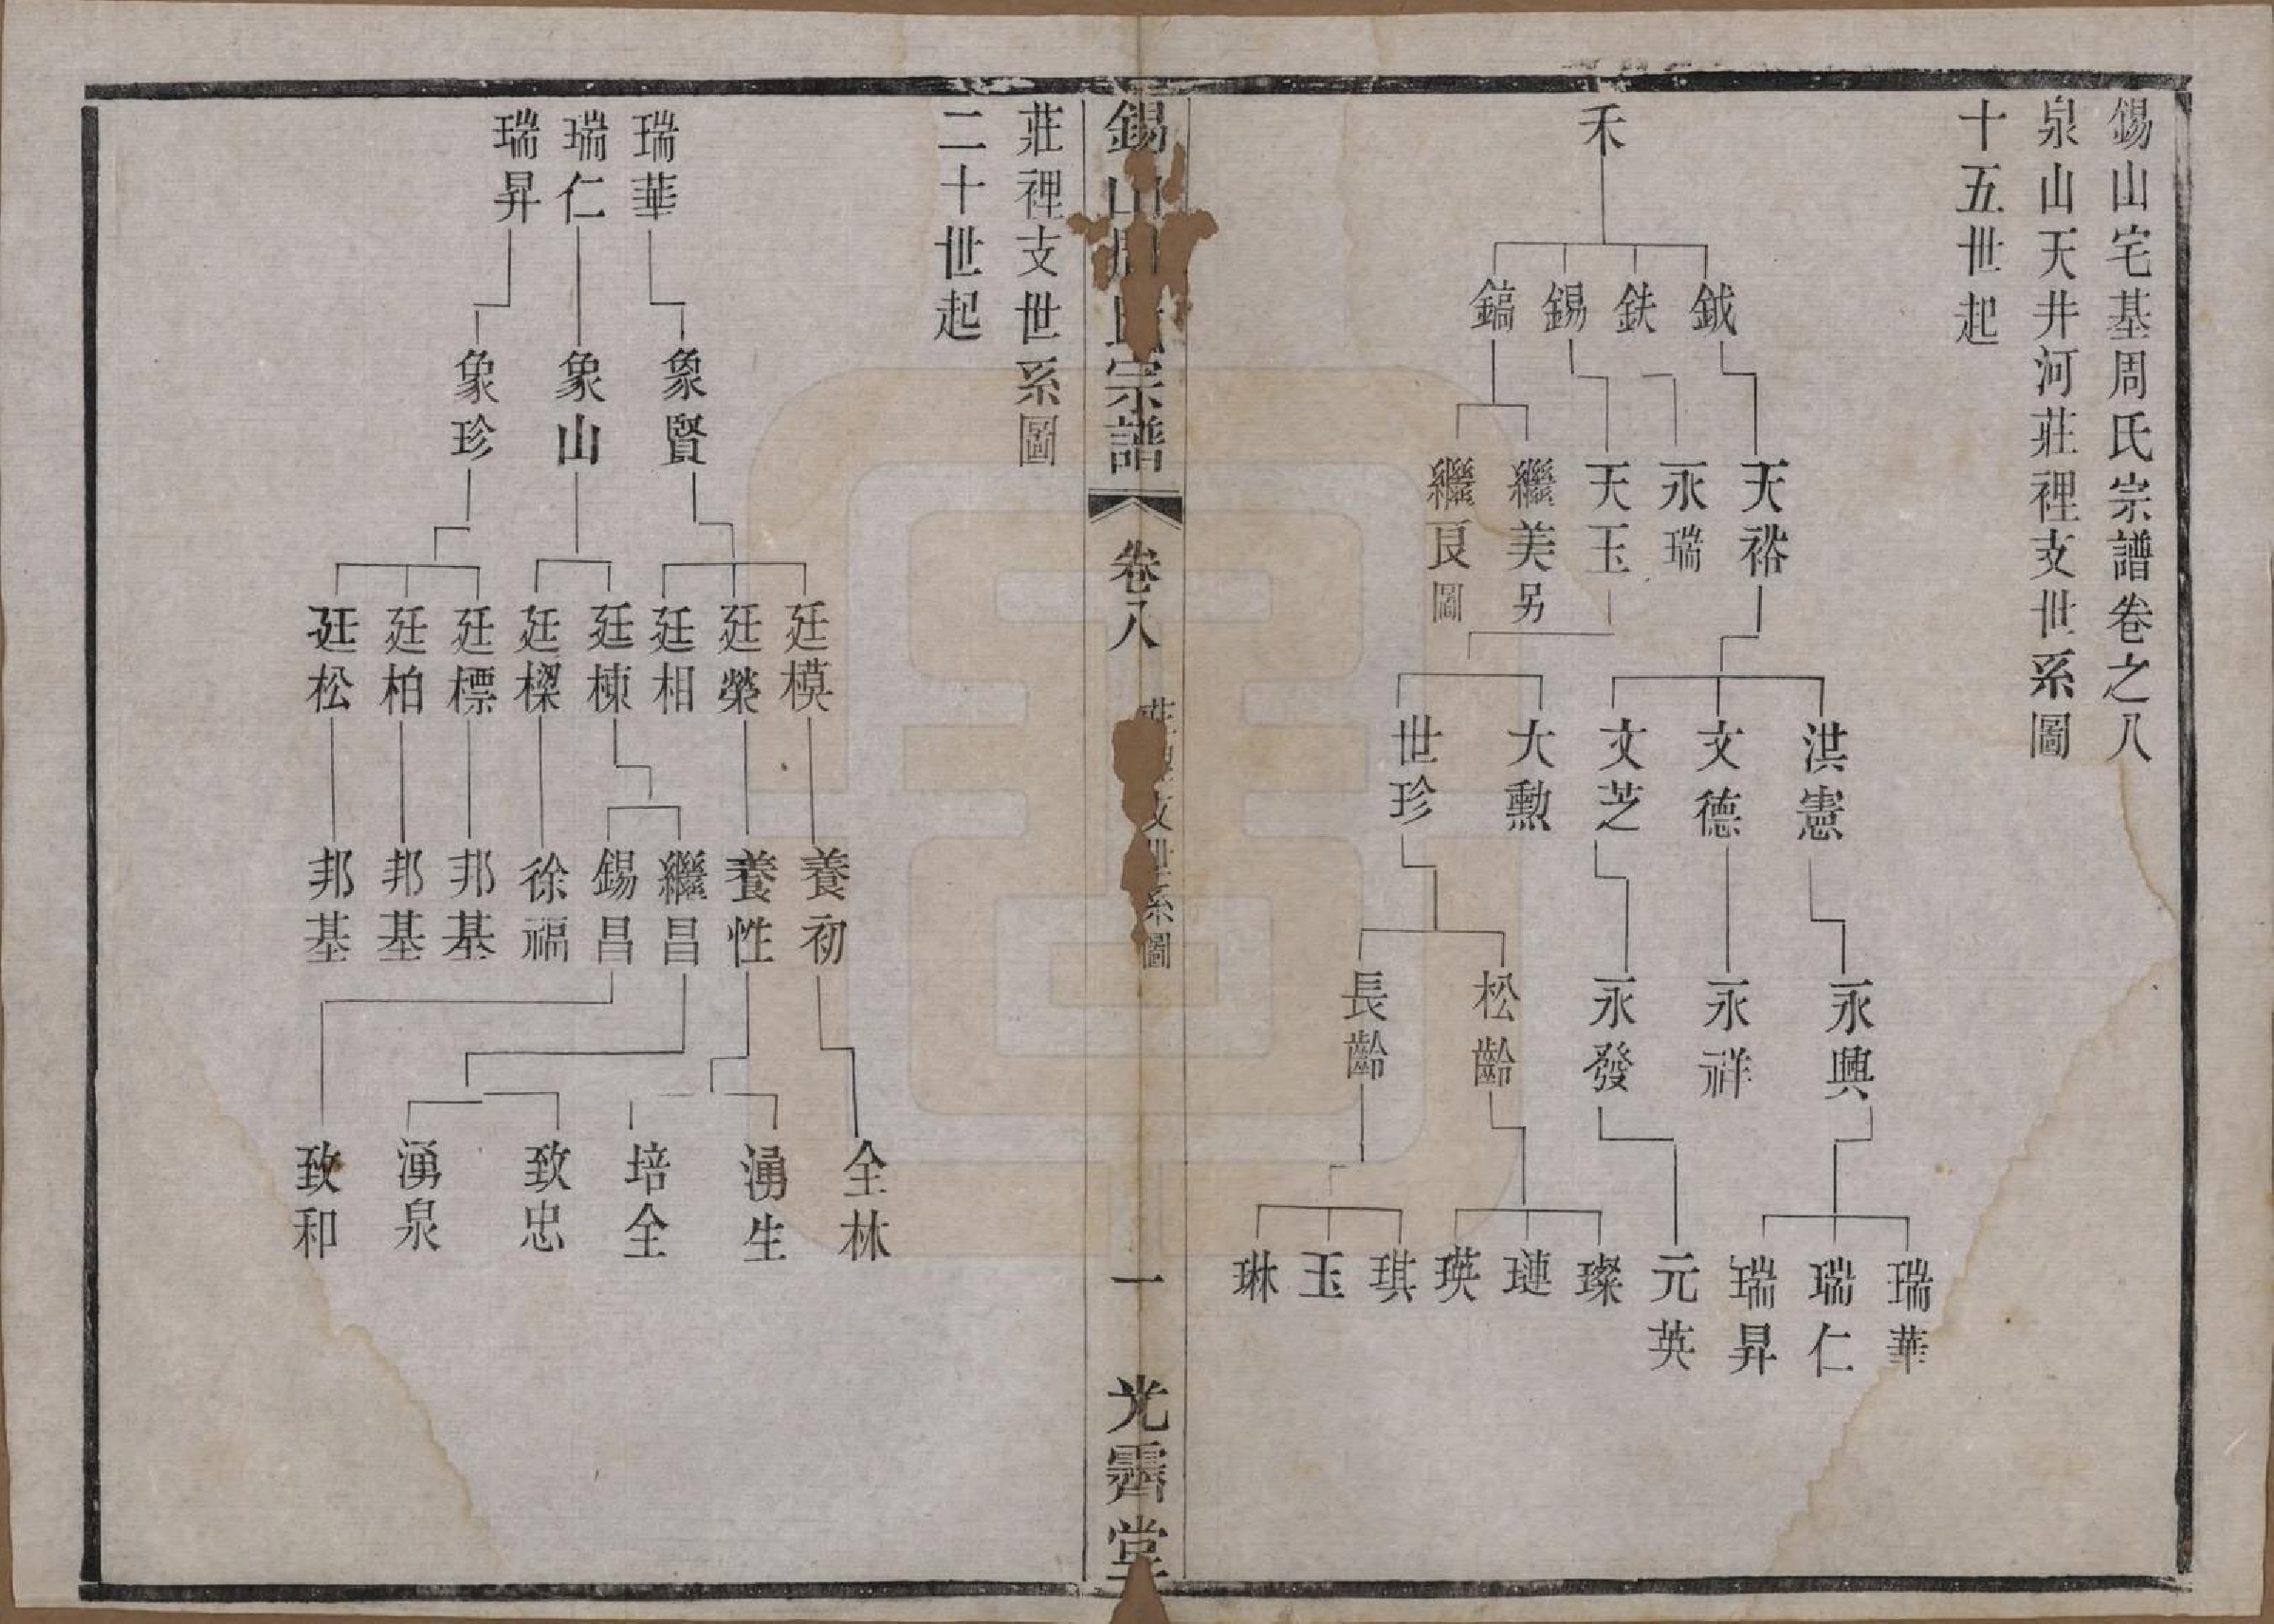 錫山宅基周氏宗譜卷之八
泉山天井河莊裡支世系圖
十五世起
禾
鉞
鉄
錫
鎬
天裕
永瑞
天玉
繼美另
繼良圖
洪憲
文德
文芝
大勲
世珍
永興
永祥
永發
松齡
長齡
瑞華
瑞仁
瑞昇
元英
璨
璉
瑛
琪
玉
琳
錫山周氏宗譜
卷八
支世系圖
一
光霽堂
莊裡支世系圖
二十世起
瑞華
瑞仁
瑞昇
象賢
象山
象珍
廷模
廷榮
廷相
廷棟
廷樑
廷標
廷柏
廷松
養初
養性
繼昌
錫昌
徐福
邦基
邦基
邦基
全林
湧生
培全
致忠
湧泉
致和